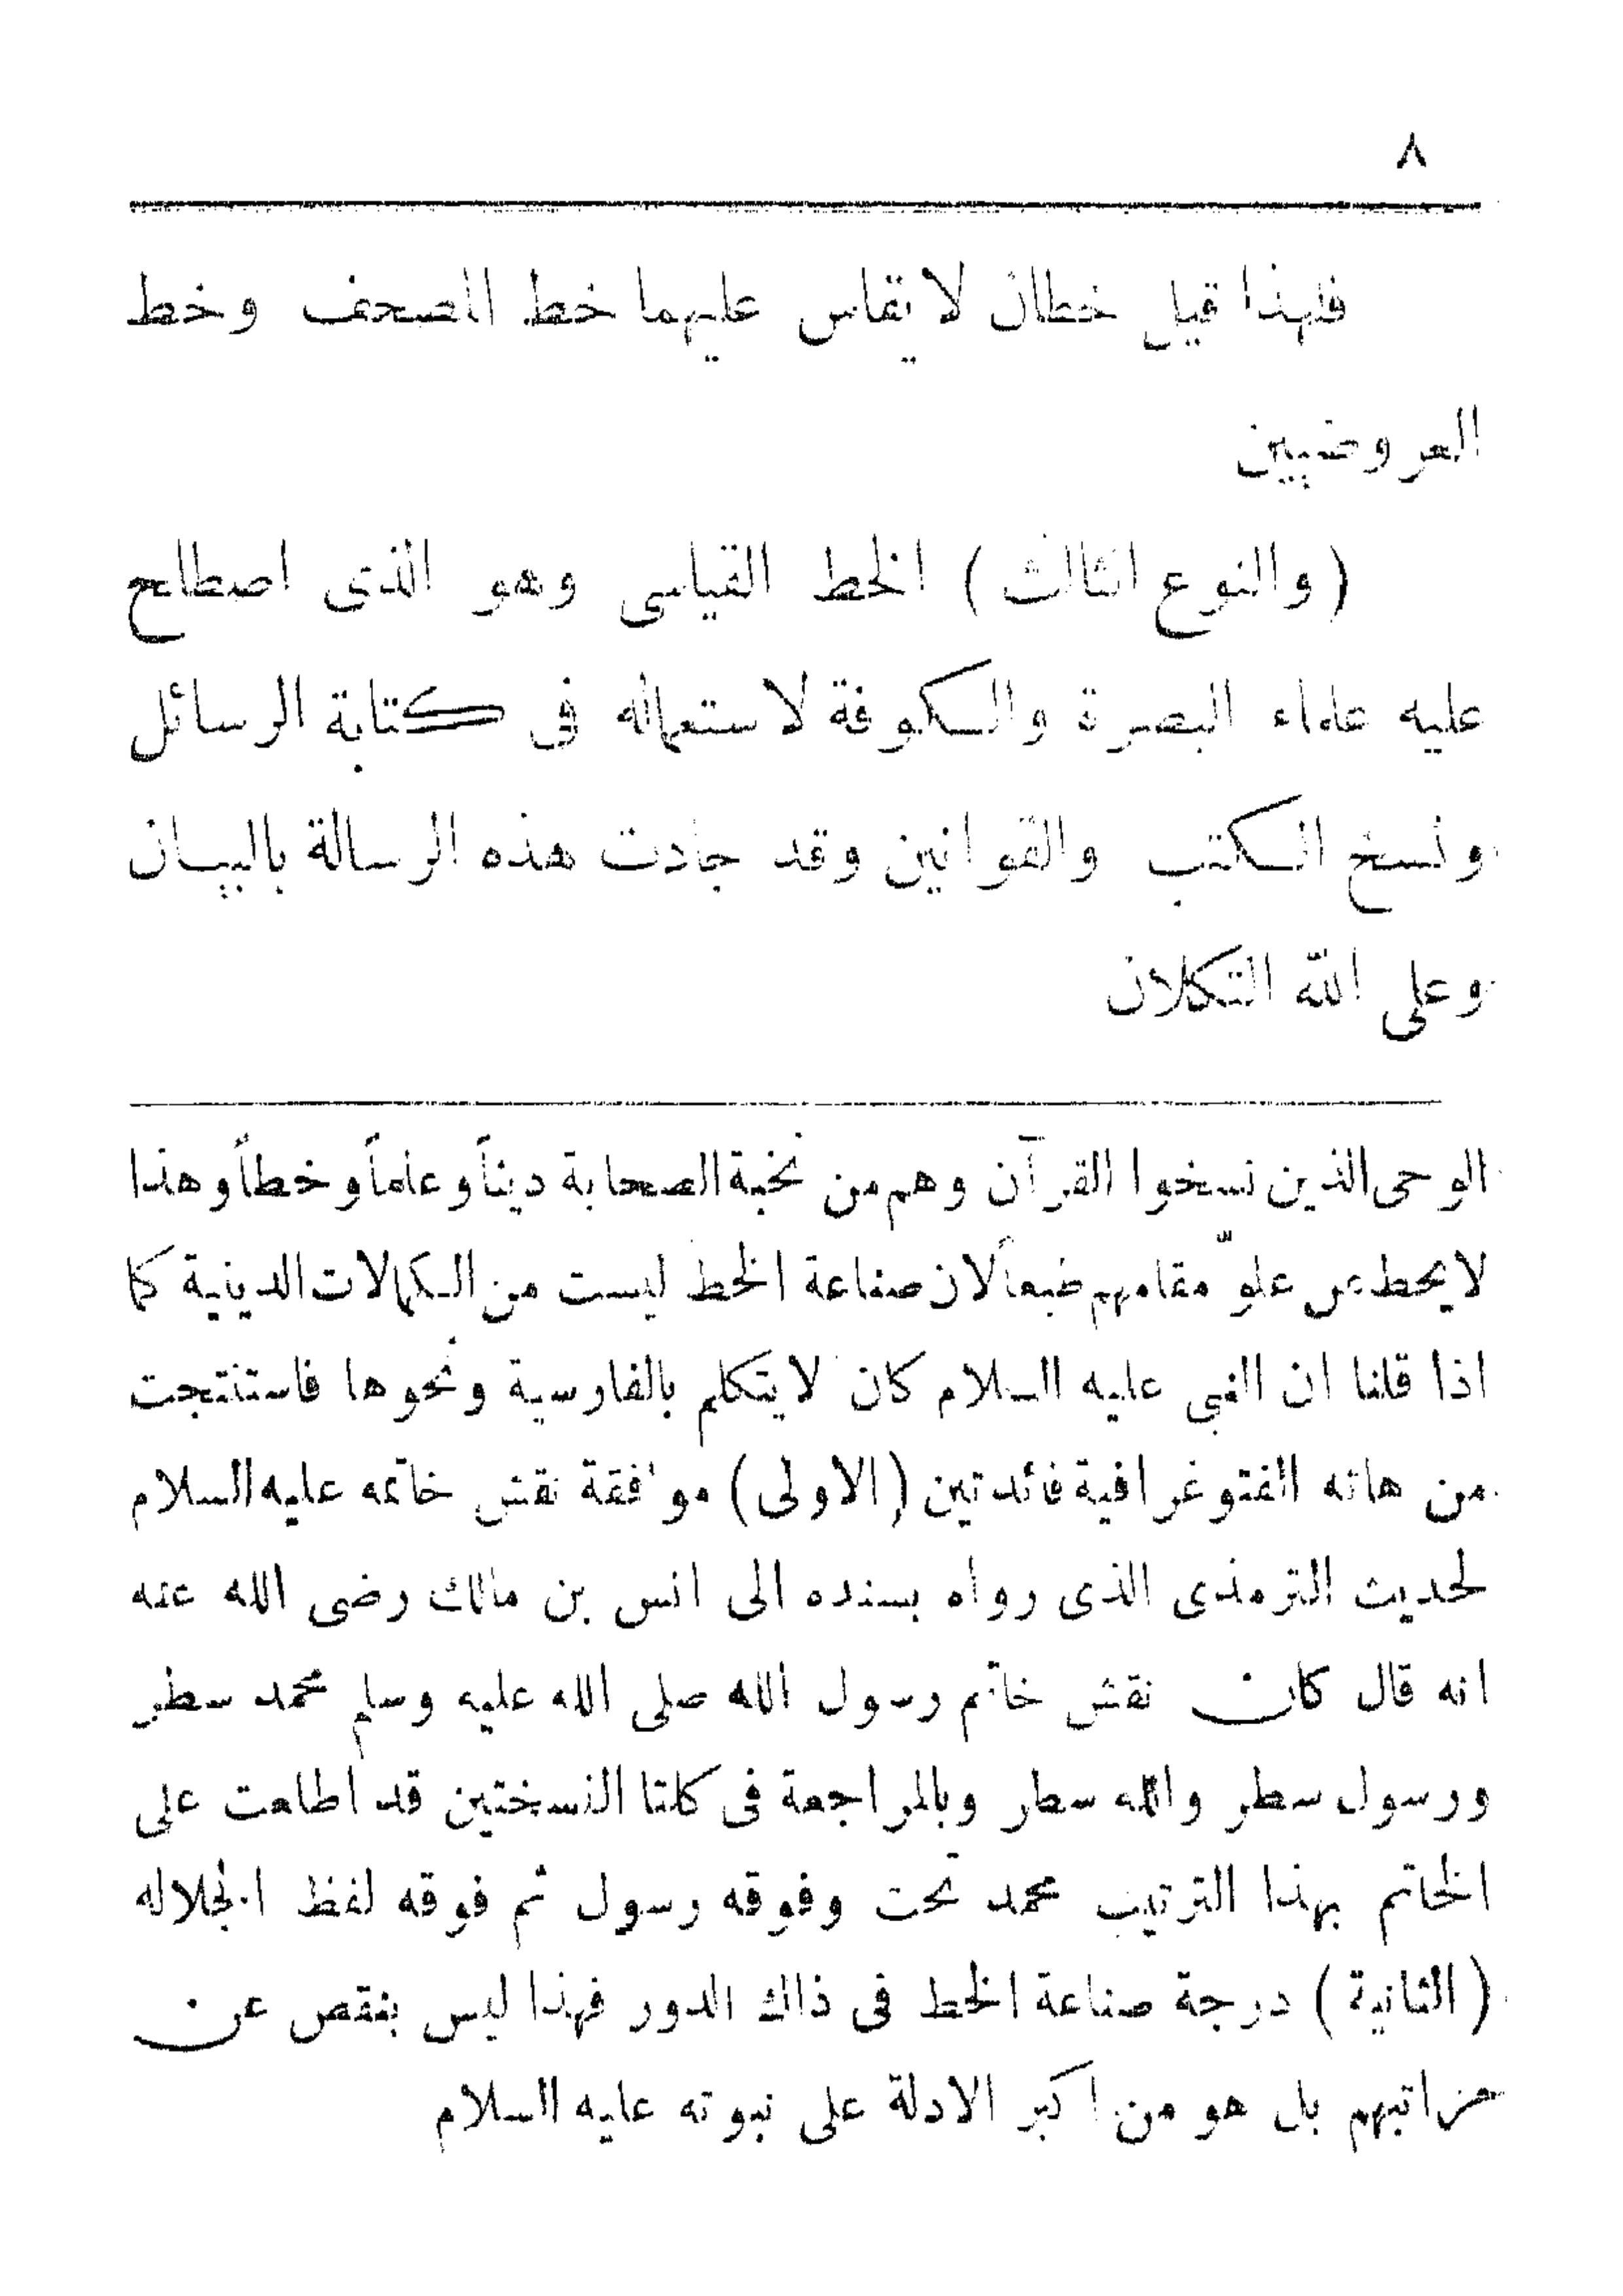 ٨
فلهذا قيل خطان لا يقاس عليهما خط المصحف وخط
العروضيين
( والنوع الثالث ) الخط القياسى وهو الذى اصطلح
عليه علماء البصرة والكوفة لاستعماله فى كتابة الرسائل
ونسخ الكتب والقوانين وقد جادت هذه الرسالة بالبيان
وعلى الله التكلان
الوحى الذين نسخوا القرآن وهم من نخبة الصحابة ديناً وعلماً وخطاً وهذا
لا يحط عن علوّ مقامهم طبعاً لان صناعة الخط ليست من الكمالات الدينية كما
اذا قلنا ان النبى عليه السلام كان لا يتكلم بالفارسية ونحوها فاستنتجت
من هاته الفتوغرافية فائدتين ( الاولى ) موافقة نقش خاتمه عليه السلام
لحديث الترمذى الذى رواه بسنده الى انس بن مالك رضى الله عنه
انه قال كان نقش خاتم رسول الله صلى الله عليه وسلم محمد سطر
ورسول سطر والله سطر وبالمراجعة فى كلتا النسختين قد اطلعت على
الخاتم بهذا الترتيب محمد تحت وفوقه رسول ثم فوقه لفظ الجلاله
( الثانية ) درجة صناعة الخط فى ذلك الدور فهذا ليس بنقص عن
مراتبهم بل هو من اكبر الادلة على نبوته عليه السلام